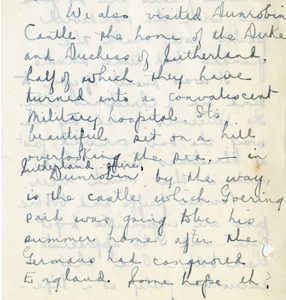 We also visited Dunrobin
Castle - the home of the Duke
and Duchess of Sutherland,
half of which they have
turned into a convalescent
Military hospital. Its
beautiful sit on a hill
overlooking the sea, - in
Sutherland shire.
Dunrobin, by the way,
is the castle which Goering
said was going to be his
summer home after the
Germans had conquered
England. Some hope, eh?